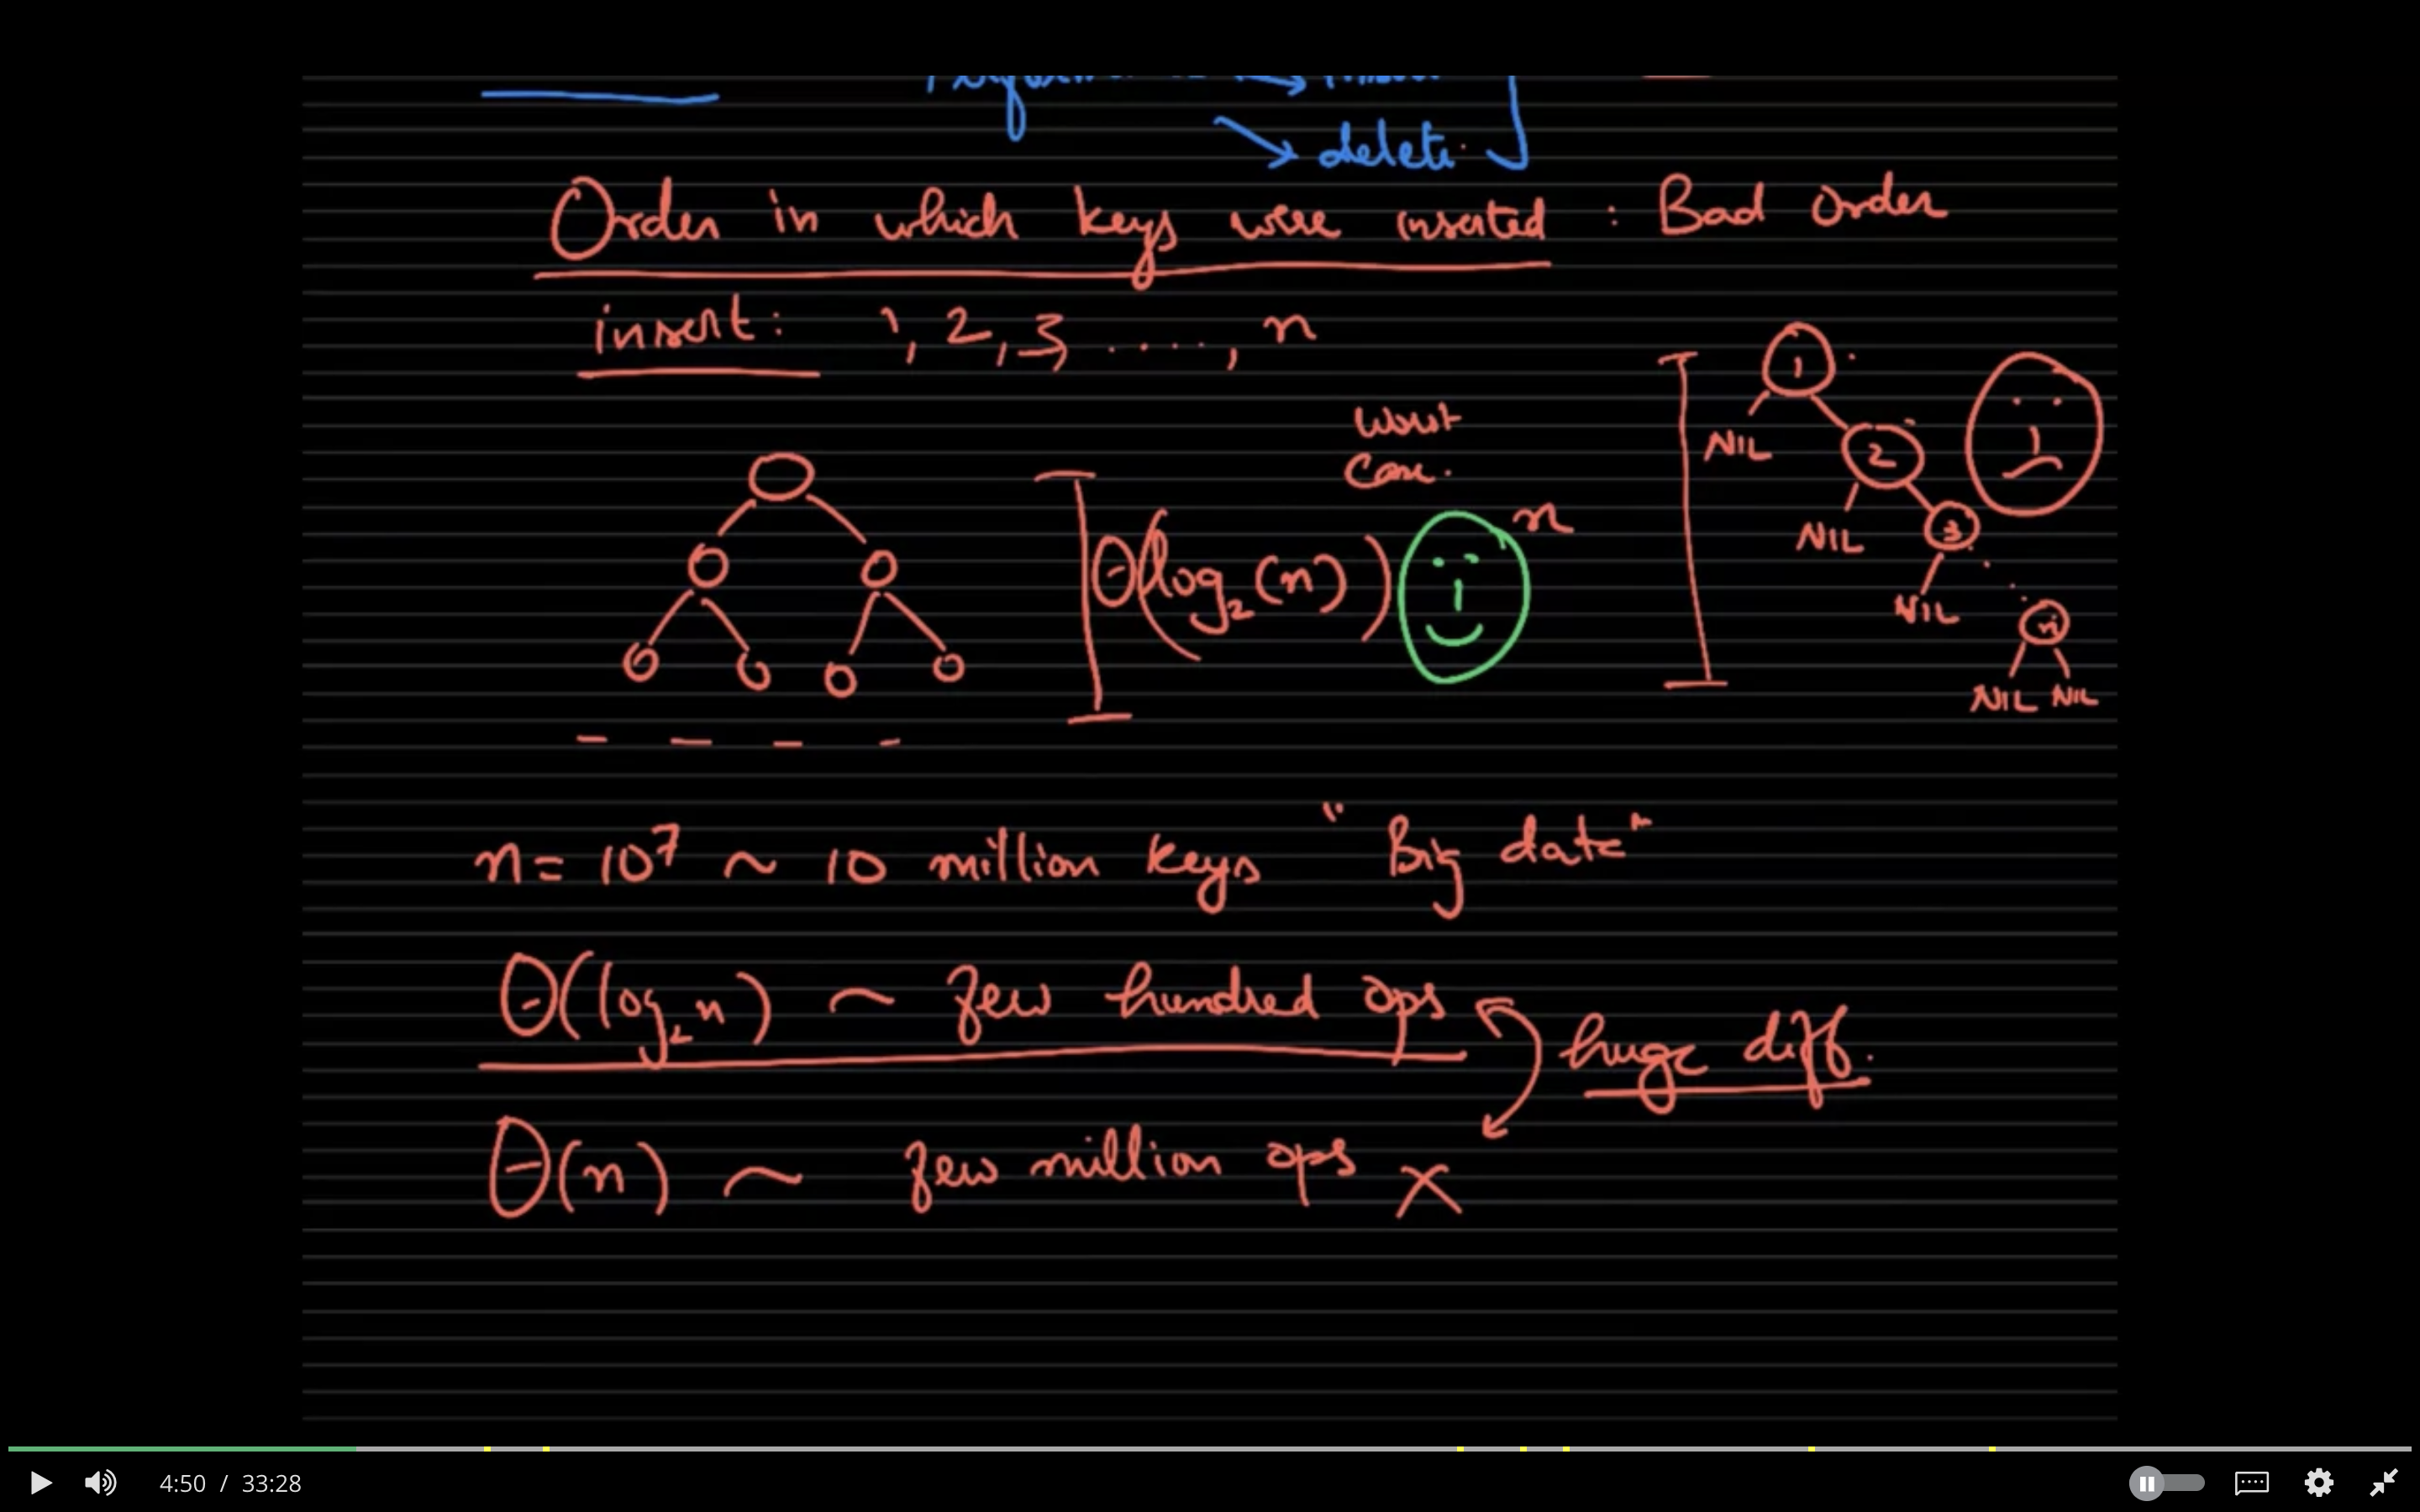 delete
Order in which keys were inserted : Bad Order
insert: 1, 2, 3 ....., n
1
NIL
2
NIL
3
NIL
n
NIL NIL
Worst
Case.
n
Θ(log₂(n))
n = 10⁷ ~ 10 million keys "Big data"
Θ(log₂ n) ~ few hundred ops
huge diff.
Θ(n) ~ few million ops X
4:50 / 33:28